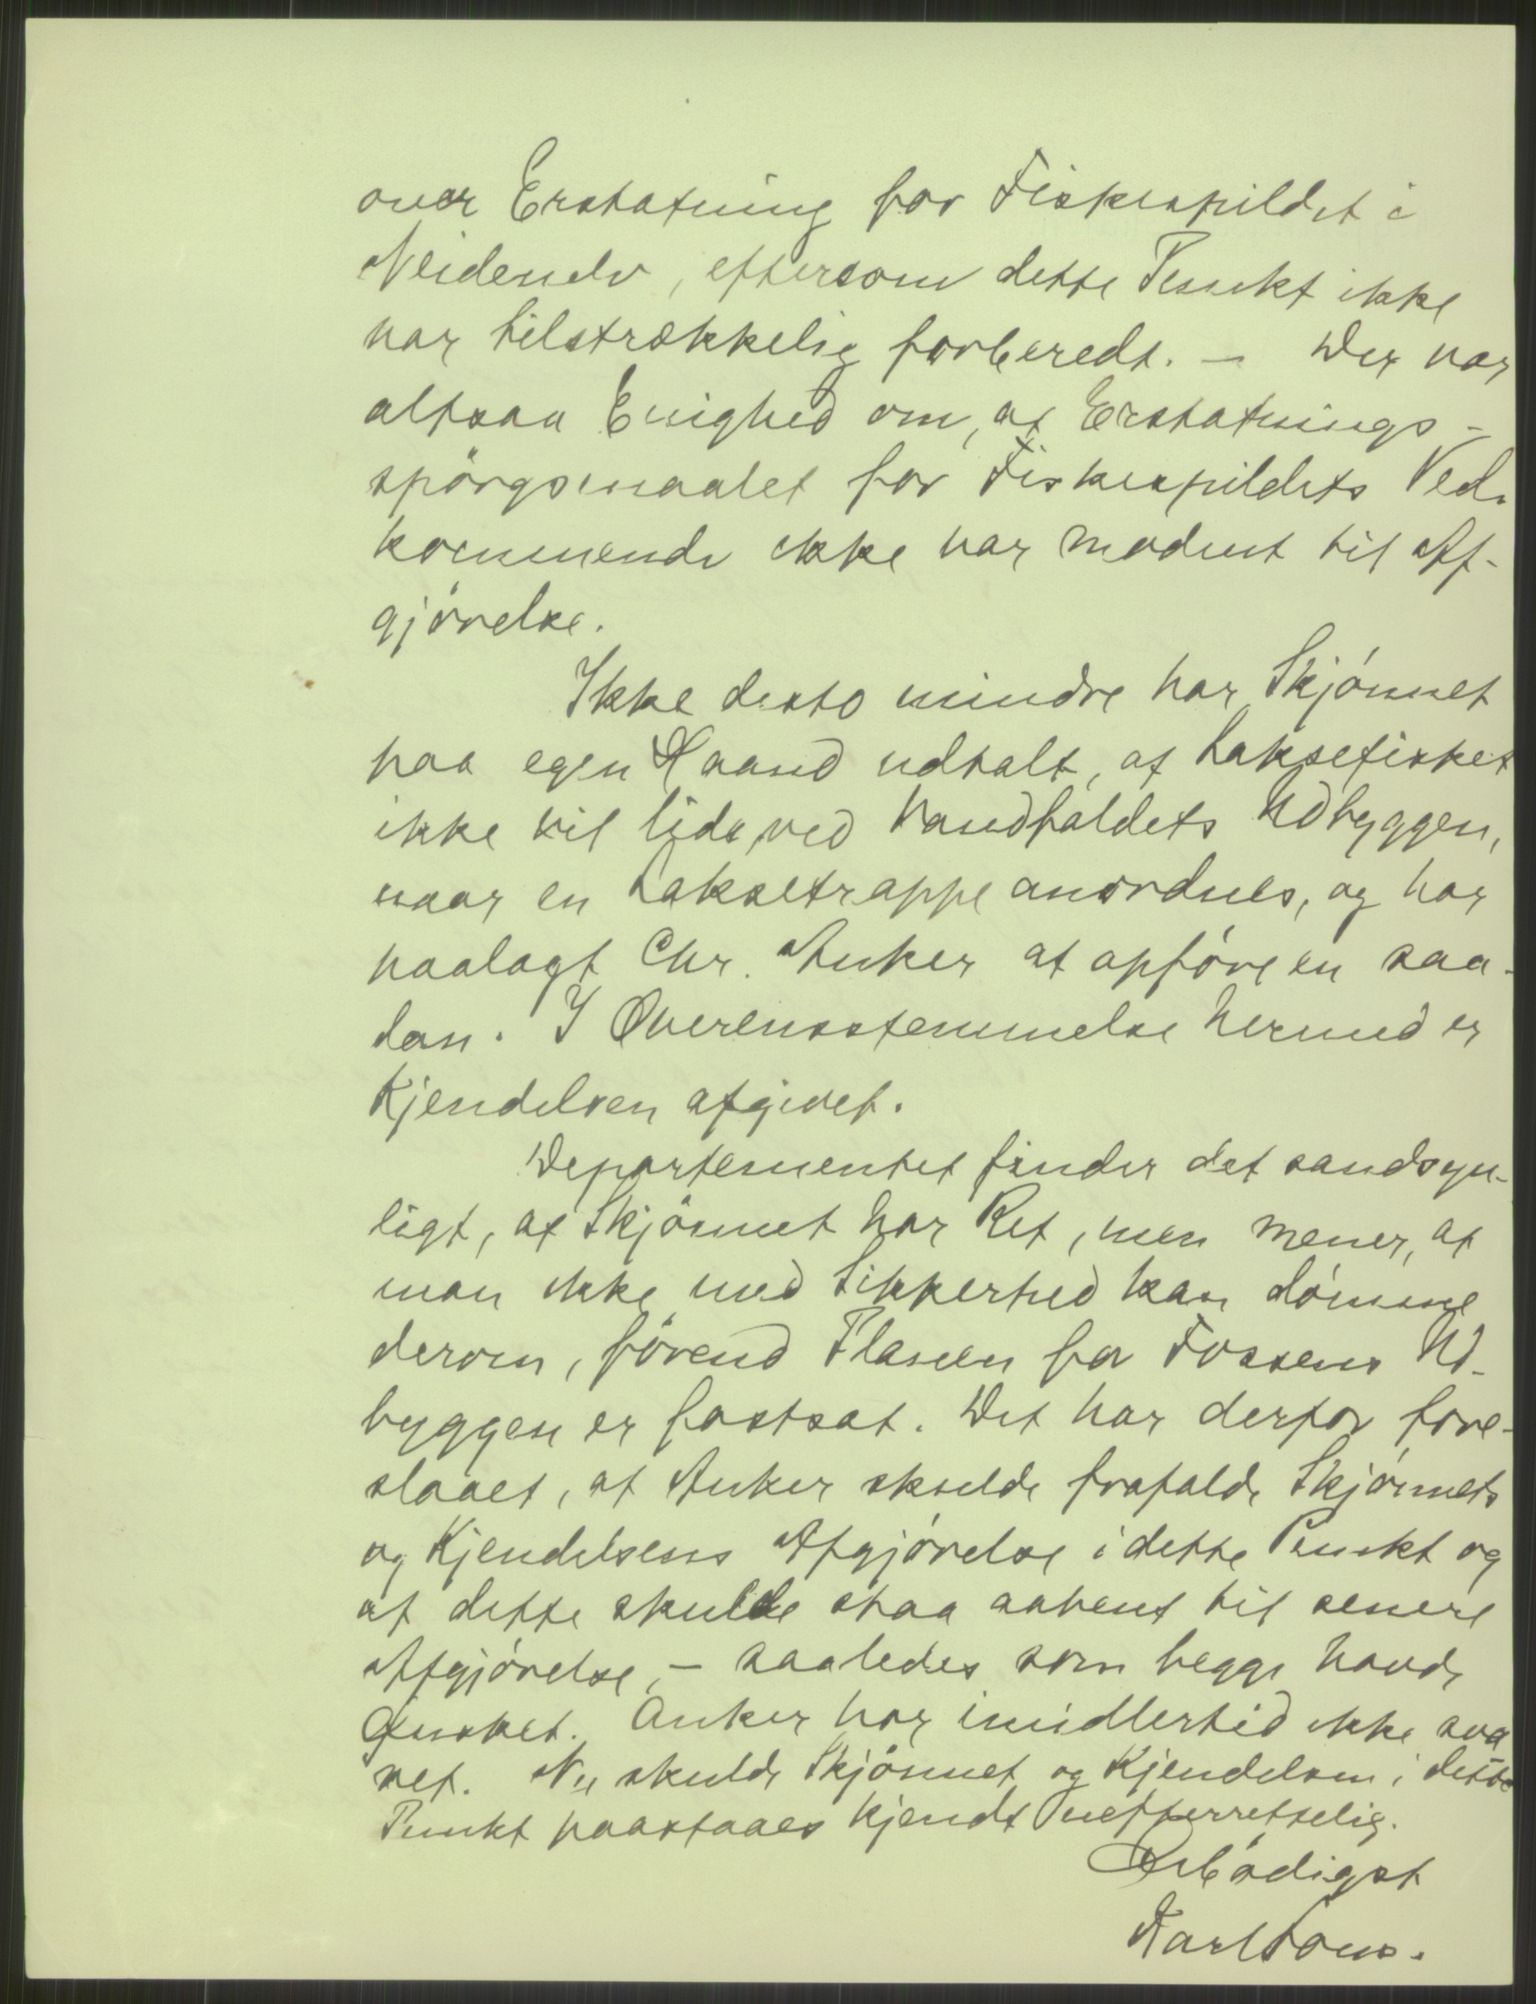 over Erstatning for Fiskespildet i
Neidenelv, eftersom dette Punkt ikke
var tilstrækkelig forberedt. — Der var
altsaa Enighed om, at Erstatnings-
spörgsmaalet for Fiskespildets Ved-
kommende ikke var modent til Af-
gjörelse.
Ikke desto mindre har Skjönnet
paa egen Haand udtalt, at Laksefisket
ikke vil lide ved Vandfaldets Udbyggen,
naar en Laksetrappe anordnes, og har
paalagt Chr. Anker at opföre en saa-
dan. I Overensstemmelse hermed er
Kjendelsen afgivet.
Departementet finder det sandsyn-
ligt, at Skjönnet har Ret, men mener, at
man ikke med Sikkerhed kan dömme
derom, förend Planen for Fossens Ud-
byggen er fastsat. Det har derfor fore-
slaaet, at Anker skulde frafalde Skjönnets
og Kjendelsens Afgjörelse i dette Punkt og
at dette skulde staa aabent til senere
Afgjörelse, — saaledes som begge havde
önsket. Anker har imidlertid ikke sva-
ret. Nu skulde Skjönnet og Kjendelsen i dette
Punkt paastaaes kjendt uefterrettelig.
Ærbödigst
Karl Lous.